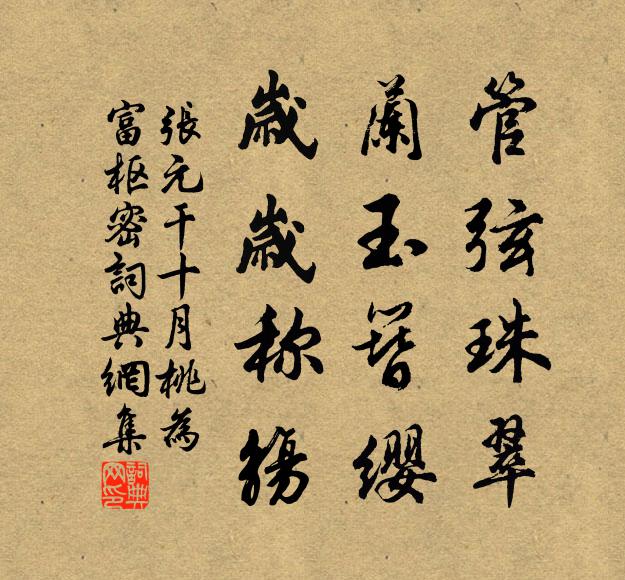 管弦珠翠
蘭玉簪纓
歲歲称觴
張元干十月桃為
富枢密詞典網集
詞典网印